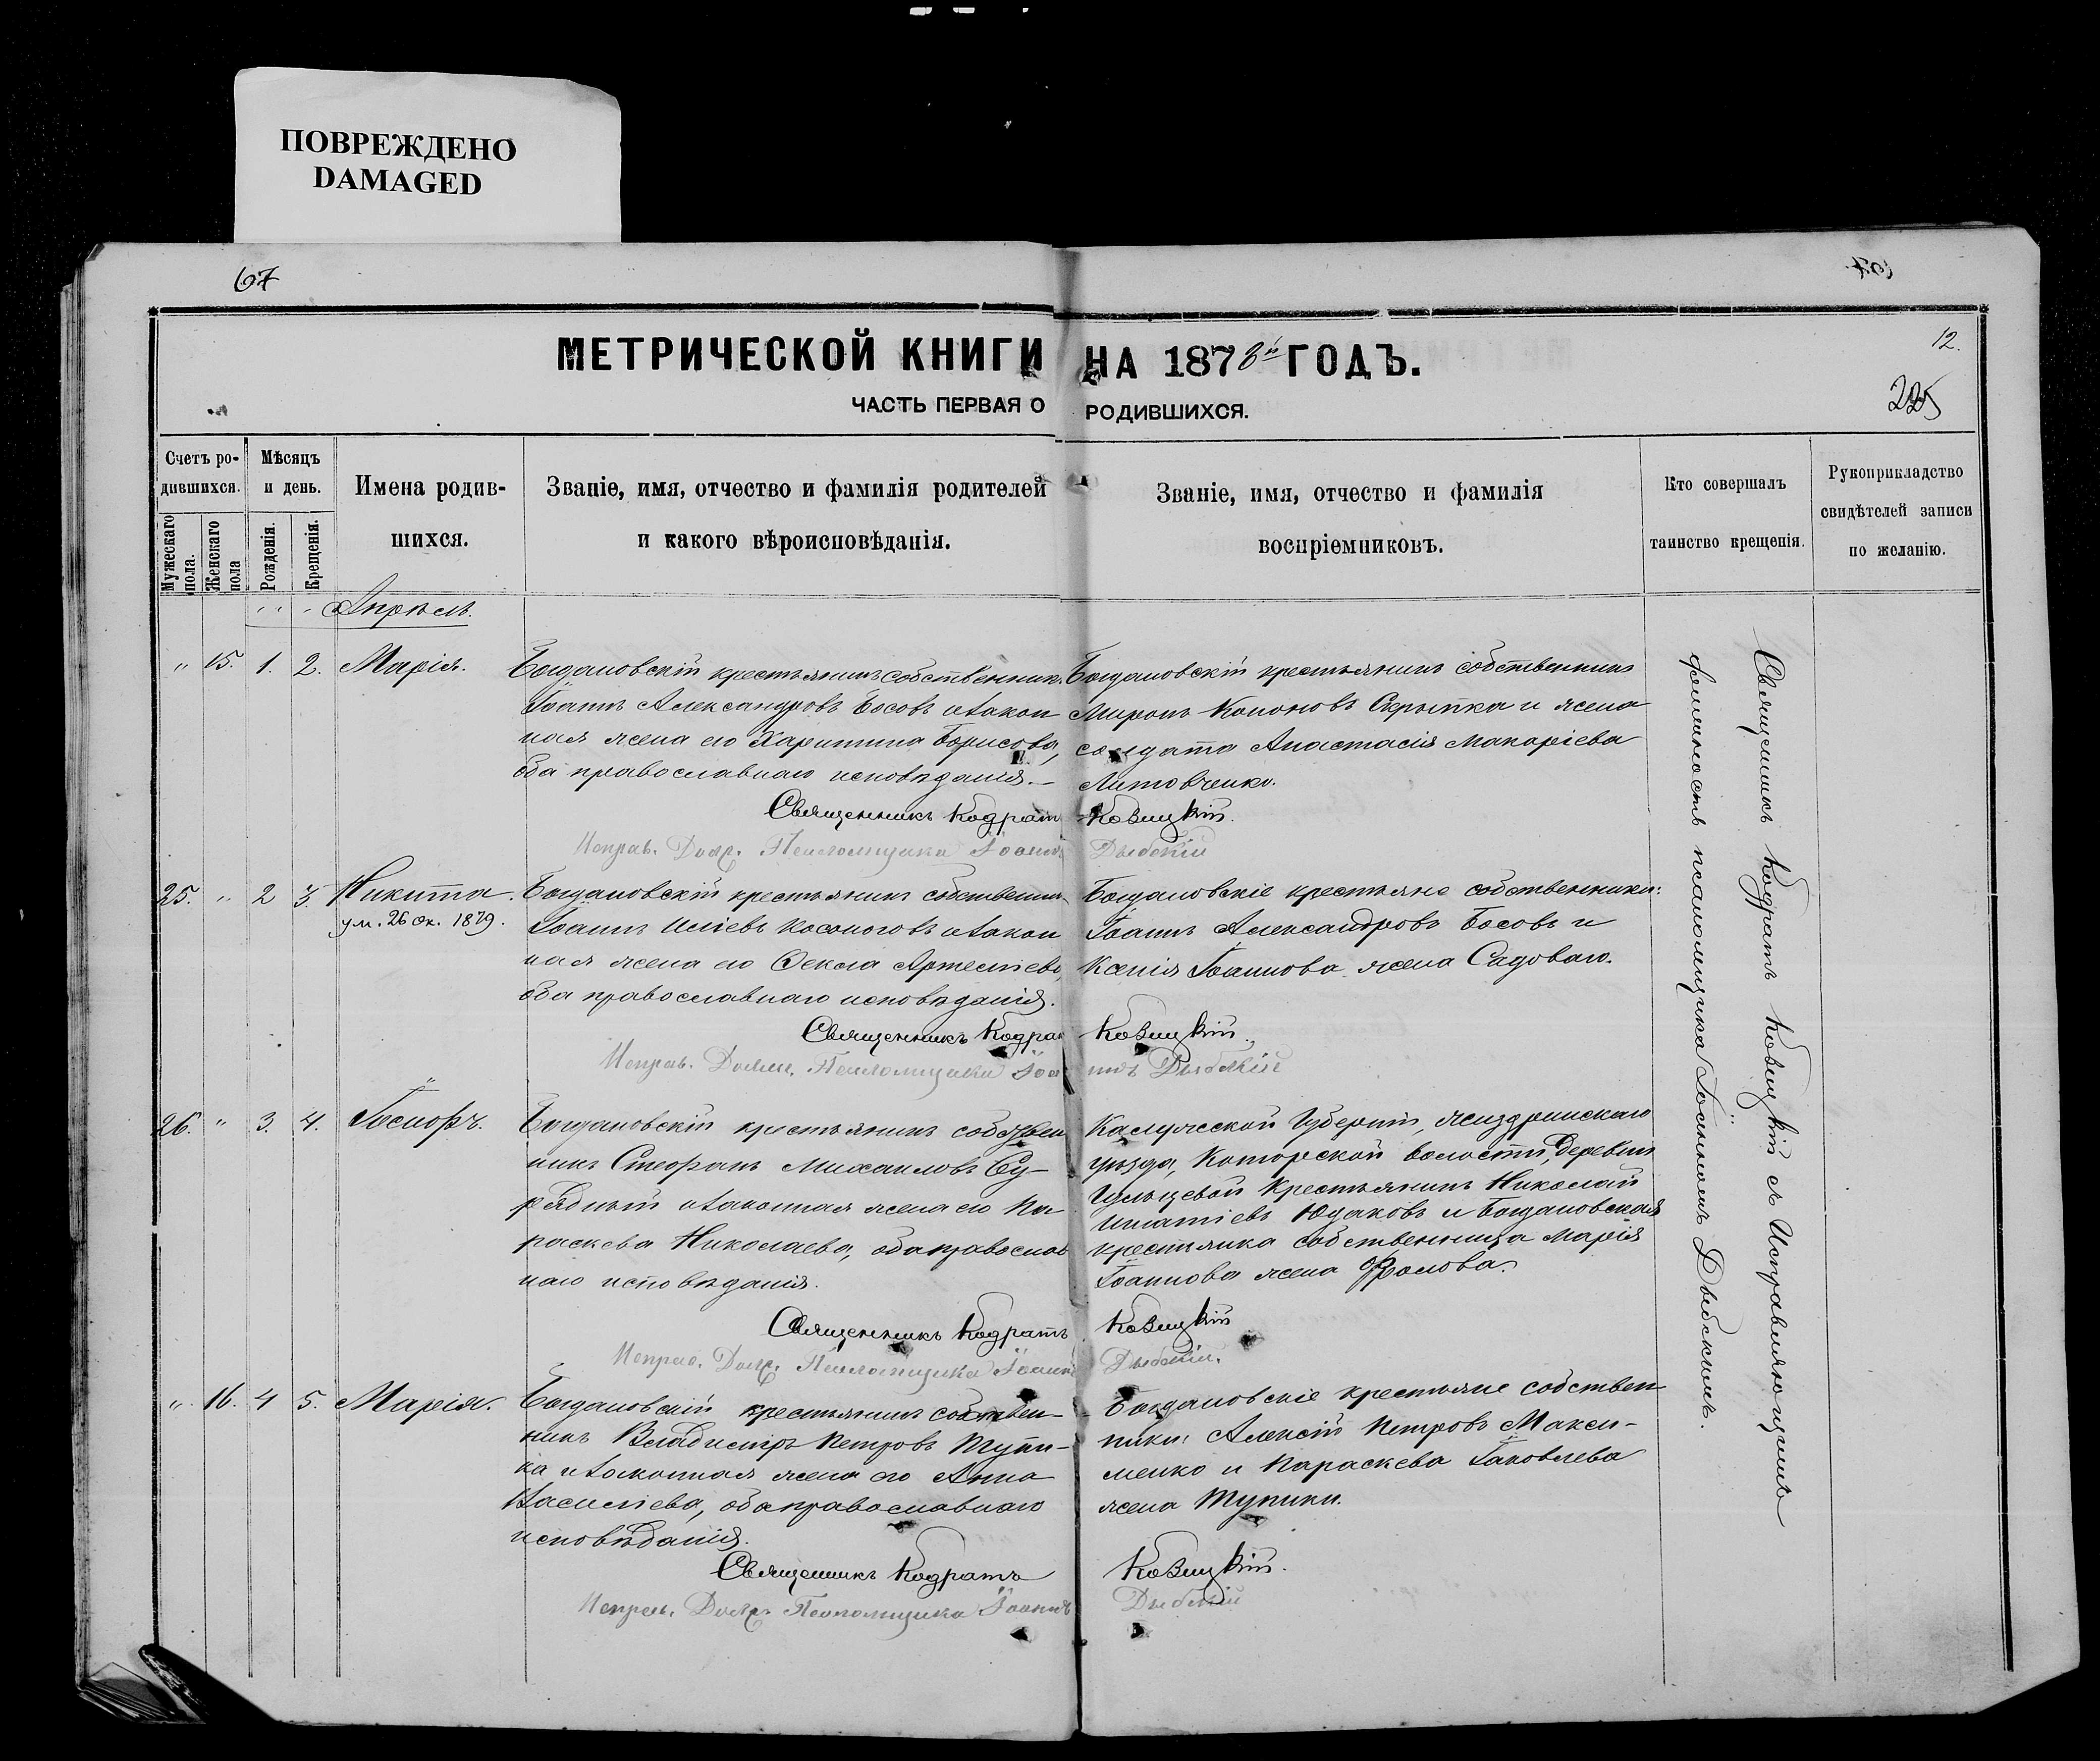 ПОВРЕЖДЕНО
DAMAGED
67
МЕТРИЧЕСКОЙ КНИГИ НА 1878й ГОДЪ.
12.
ЧАСТЬ ПЕРВАЯ О РОДИВШИХСЯ.
225
Счетъ ро-
дившихся.
Мужескаго пола.
Женскаго пола
Мѣсяцъ
и день.
Рожденія.
Крещенія.
Имена родив-
шихся.
Званіе, имя, отчество и фамилія родителей
и какого вѣроисповѣданія.
Званіе, имя, отчество и фамилія
воспріемниковъ.
Кто совершалъ
таинство крещенія.
Рукоприкладство
свидѣтелей записи
по желанію.
Апрѣль.
" 15. 1. 2. Марія.
Богдановскій крестьянинъ собственник.
Іоаннъ Александровъ Босовъ и закон
ная жена его Харитина Борисова,
оба православнаго исповѣданія.—
Богдановскій крестьянинъ собственникъ
Миронъ Кононовъ Скрыпка и жена
солдата Анастасія Макаріева
Литовченко.
Священникъ Кодратъ Ковицкій.
Исправ. Долж. Псаломщика Іоаннъ Дыбскій
25. " 2 3. Никита.
ум. 26 Ок. 1879.
Богдановскій крестьянинъ собственник
Іоаннъ Иліевъ Косоноговъ и закон
ная жена его Ѳекла Артеміева,
оба православнаго исповѣданія.
Богдановскіе крестьяне собственники:
Іоаннъ Александровъ Босовъ и
Ксенія Іоаннова жена Садоваго.
Священникъ Кодрат Ковицкій.
Исправ. Должн. Псаломщика Іоаннъ Дыбскій
26. " 3. 4. Іосифъ.
Богдановскій крестьянинъ собствен
никъ Стефанъ Михаиловъ Су-
рядный и законная жена его Па
раскева Николаева, оба православ
наго исповѣданія.
Калужской Губерніи, Жиздринскаго
уѣзда, Которской волости, деревни
крестьянинъ Николай
Игнатіевъ Юдаковъ и Богдановская
крестьянка собственница Марія
Іоаннова жена Фролова.
Священникъ Кодратъ Ковицкій
Исправ. Долж. Псаломщика Іоаннъ Дыбскій.
" 16. 4 5. Марія.
Богдановскій крестьянинъ собствен-
никъ Владиміръ Петровъ Тупи-
ка и законная жена его Анна
Василіева, оба православнаго
исповѣданія.
Богдановскіе крестьяне собствен-
ники: Алексій Петровъ Макси-
менко и Параскева Іаковлева
жена Тупики.
Священникъ Кодратъ Ковицкій.
Исправ. Долж. Псаломщика Іоаннъ Дыбскій
Священникъ Кодратъ Ковицкій съ Исправляющимъ
должность псаломщика Іоанномъ Дыбскимъ.